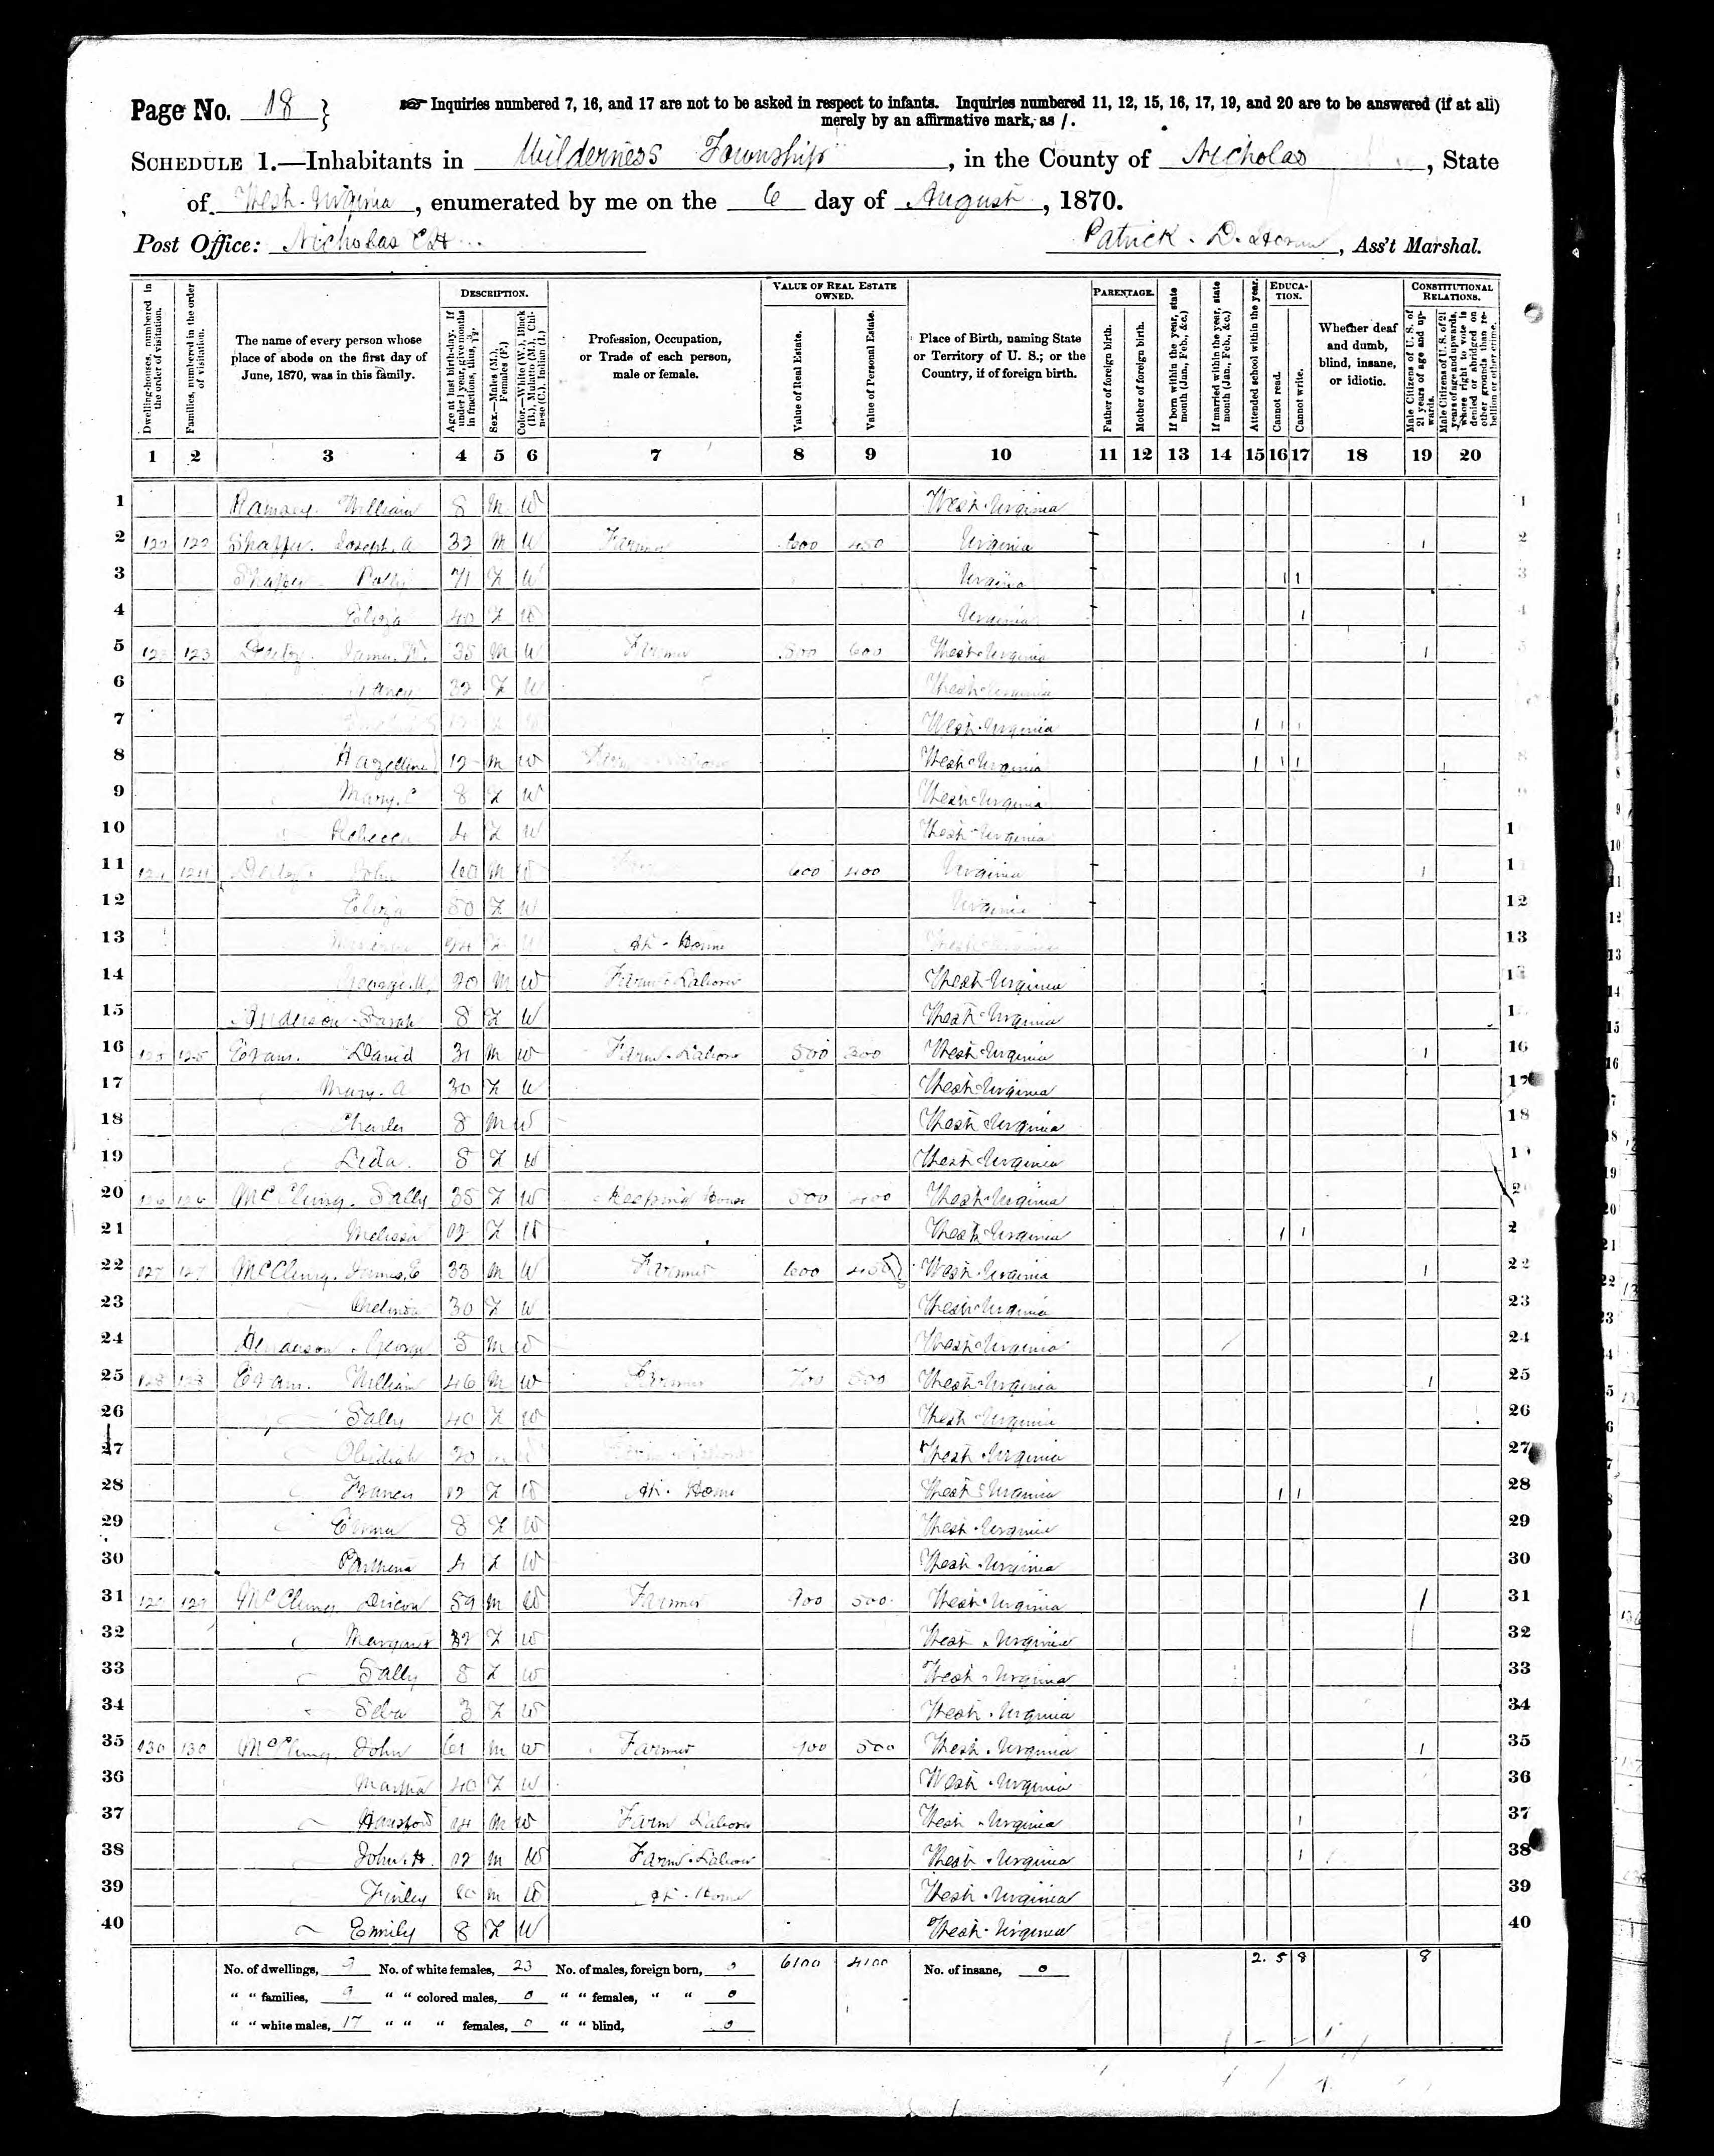 Page No. 18 }
Inquiries numbered 7, 16, and 17 are not to be asked in respect to infants. Inquiries numbered 11, 12, 15, 16, 17, 19, and 20 are to be answered (if at all)
merely by an affirmative mark, as /.
SCHEDULE 1.—Inhabitants in Wilderness Township, in the County of Nicholas, State
of West Virginia, enumerated by me on the 6 day of August, 1870.
Post Office: Nicholas CH
Patrick D., Ass't Marshal.
Dwelling-houses, numbered in the order of visitation.
Families, numbered in the order of visitation.
The name of every person whose place of abode on the first day of June, 1870, was in this family.
DESCRIPTION.
Age at last birth-day. If under 1 year, give months in fractions, thus, 3/12.
Sex.—Males (M.), Females (F.)
Color.—White (W.), Black (B.), Mulatto (M.), Chinese (C.), Indian (I.)
Profession, Occupation, or Trade of each person, male or female.
VALUE OF REAL ESTATE OWNED.
Value of Real Estate.
Value of Personal Estate.
Place of Birth, naming State or Territory of U. S.; or the Country, if of foreign birth.
PARENTAGE.
Father of foreign birth.
Mother of foreign birth.
If born within the year, state month (Jan., Feb., &c.)
If married within the year, state month (Jan., Feb., &c.)
Attended school within the year.
EDUCATION.
Cannot read.
Cannot write.
Whether deaf and dumb, blind, insane, or idiotic.
CONSTITUTIONAL RELATIONS.
Male Citizens of U. S. of 21 years of age and upwards.
Male Citizens of U. S. of 21 years of age and upwards, whose right to vote is denied or abridged on other grounds than rebellion or other crime.
1 2 3 4 5 6 7 8 9 10 11 12 13 14 15 16 17 18 19 20
1 Ramsey William 8 M W West Virginia
2 122 122 Joseph A 32 M W Farmer 600 450 Virginia 1
3 Polly 71 F W Virginia 1 1
4 Eliza 40 F W Virginia 1
5 123 James 35 M W Farmer 600 West Virginia 1
6 Nancy 32 F W West Virginia
7 West Virginia 1 1 1
8 Hazeltine 12 M W West Virginia 1 1 1
9 Mary 8 F W West Virginia
10 Rebecca 4 F W West Virginia
11 124 124 John 60 M W 600 400 Virginia 1
12 Eliza 50 F W Virginia
13 At Home West Virginia
14 George 20 M W Farm Laborer West Virginia
15 Anderson Sarah 8 F W West Virginia
16 125 125 Evans David 31 M W Farm Laborer 500 300 West Virginia 1
17 Mary A 30 F W West Virginia
18 Charles 8 M W West Virginia
19 Leda 5 F W West Virginia
20 126 126 McClung Sally 35 F W Keeping House 500 400 West Virginia
21 Melissa 12 F W West Virginia 1 1
22 127 127 McClung James E 33 M W Farmer 600 450 West Virginia 1
23 Melinda 30 F W West Virginia
24 Henderson George 5 M W West Virginia
25 128 128 Evans William 46 M W Farmer 700 500 West Virginia 1
26 Sally 40 F W West Virginia
27 20 M W West Virginia
28 Frances 12 F W At Home West Virginia 1 1
29 Emma 8 F W West Virginia
30 Parthena 4 F W West Virginia
31 129 129 McClung 59 M W Farmer 900 500 West Virginia 1
32 Margaret F W West Virginia
33 Sally 8 F W West Virginia
34 3 F W West Virginia
35 130 130 McClung John 61 M W Farmer 900 500 West Virginia 1
36 Martha 40 F W West Virginia
37 Hansford 14 M W Farm Laborer West Virginia 1
38 John H. 12 M W Farm Laborer West Virginia 1
39 Finley 10 M W At Home West Virginia
40 Emily 8 F W West Virginia
No. of dwellings, 9 No. of white females, 23 No. of males, foreign born, 0 6100 4100 No. of insane, 0 2. 5 8 8
" " families, 9 " " colored males, 0 " " females, " " 0
" " white males, 17 " " " females, 0 " " blind, 0